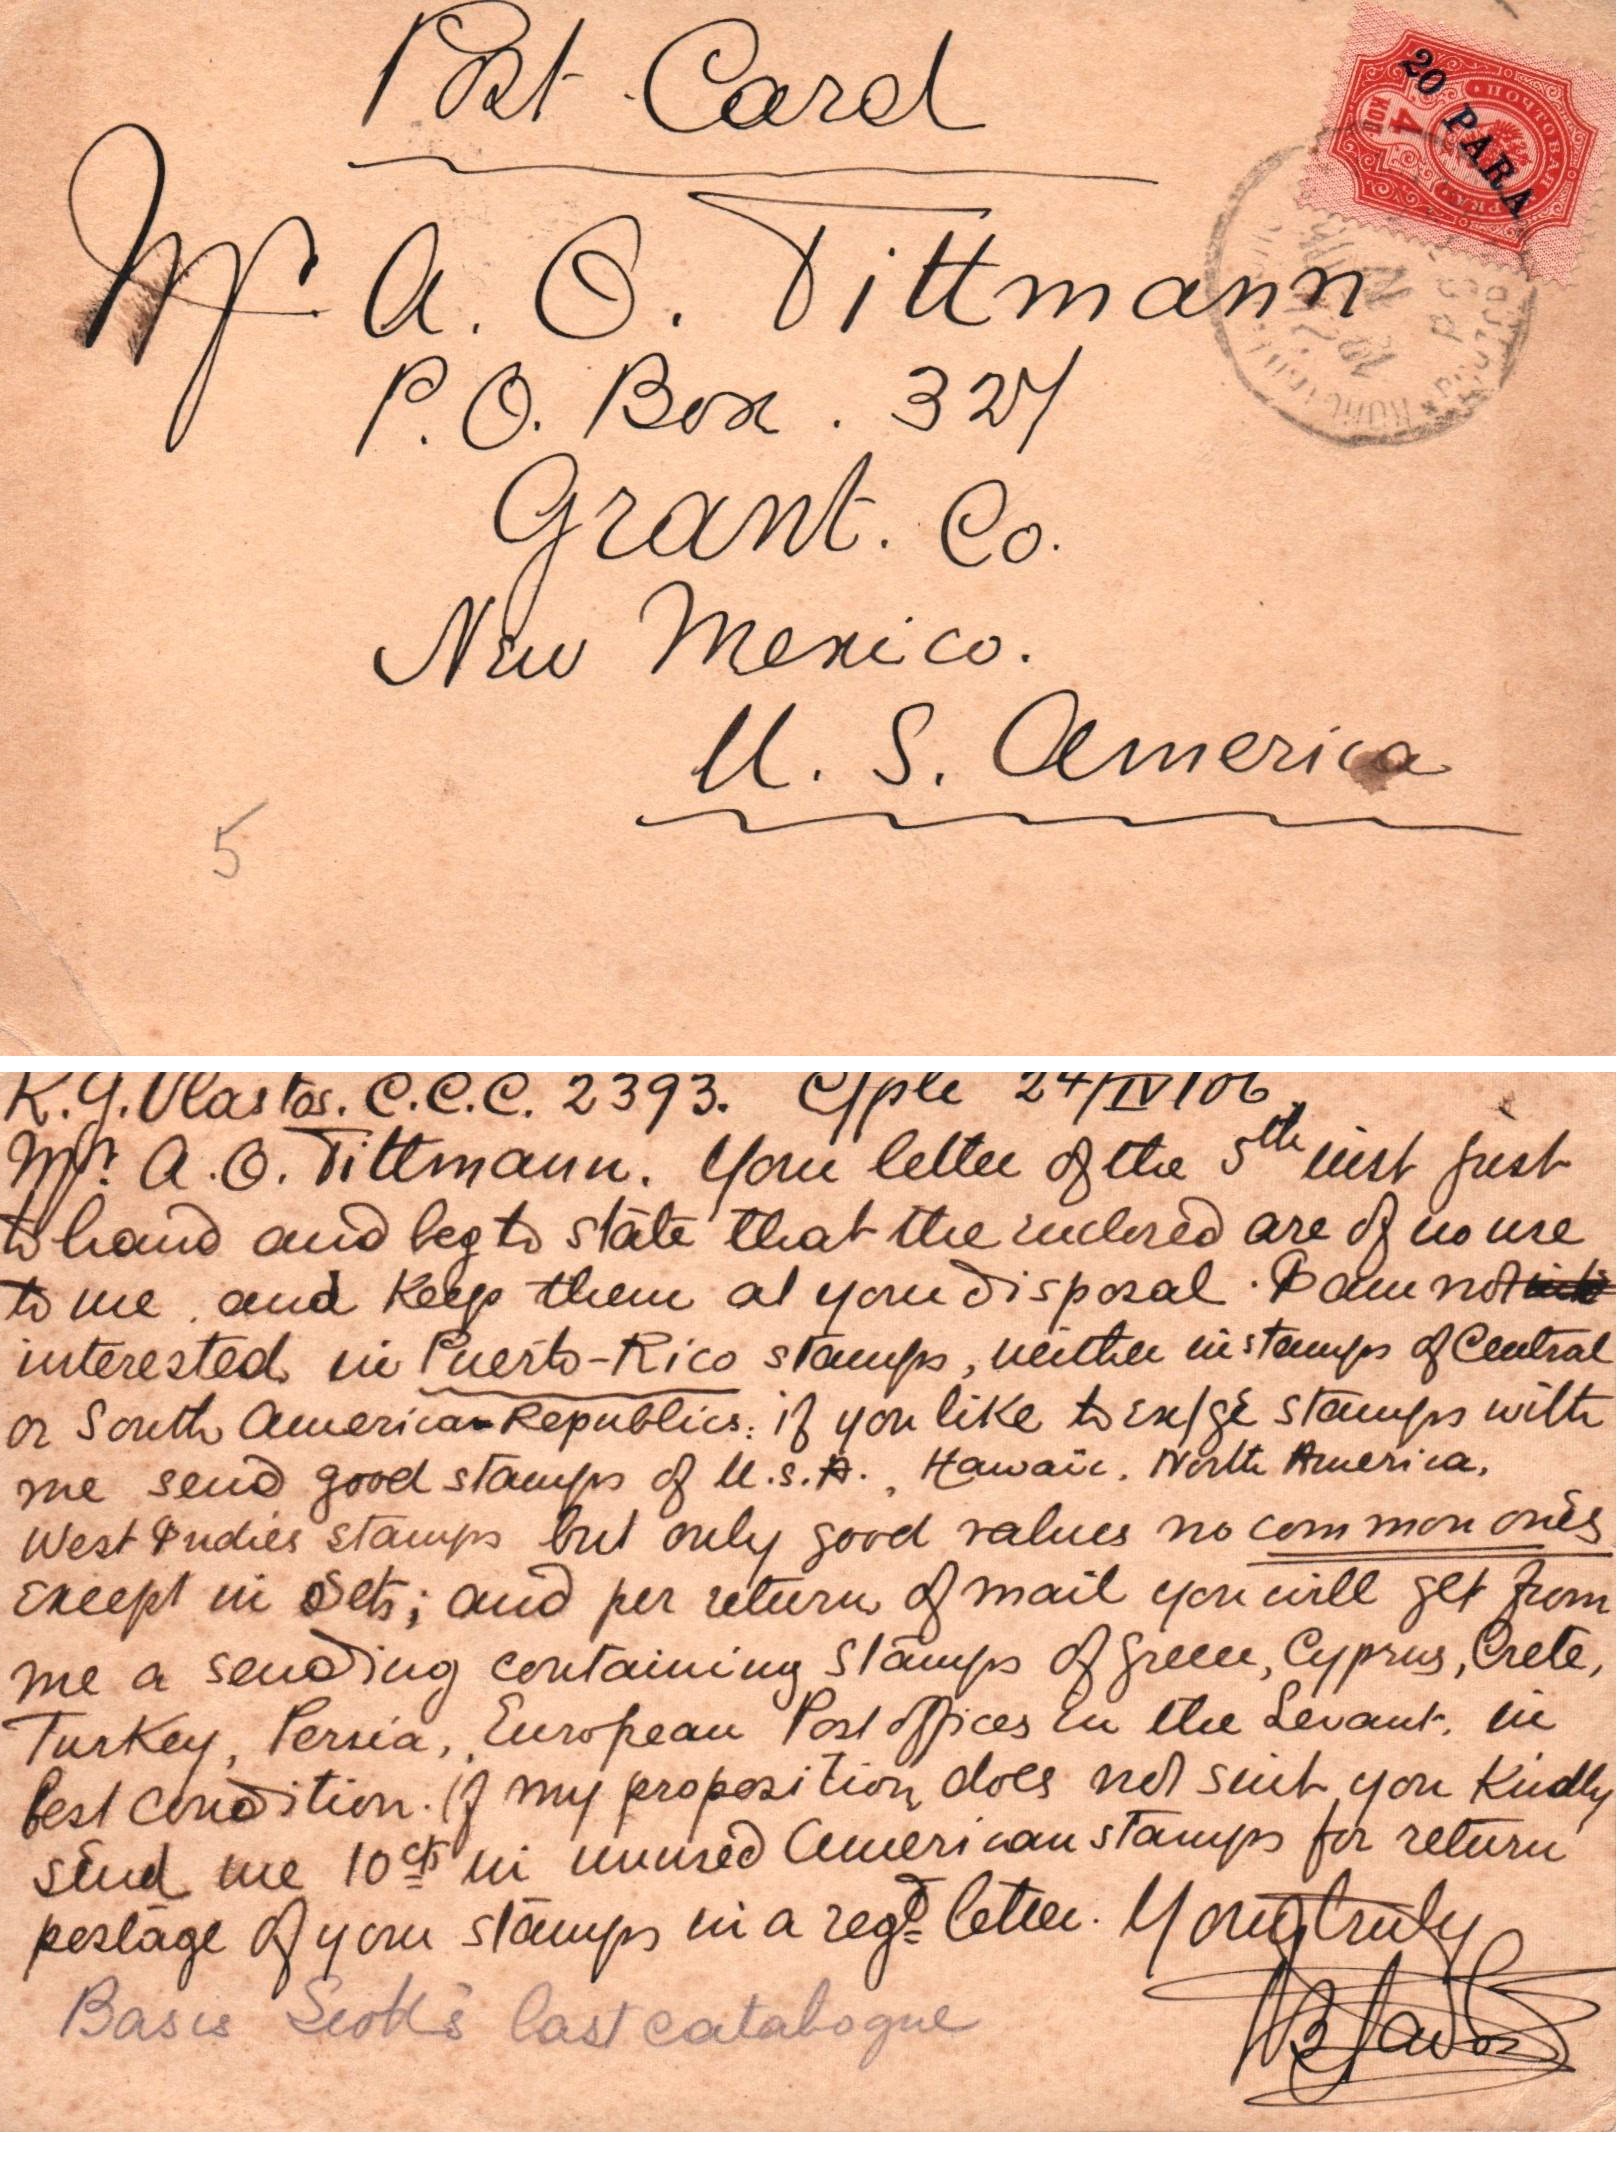 Post Card
20 PARA
ПОЧТОВАЯ
МАРКА
4 КОП
Mr. A. O. Tittmann
P. O. Box. 327
Grant. Co.
New Mexico.
U. S. America
5
K. G. Vlastos. C.C.C. 2393. C/ple 24/IV/06
Mr. A. O. Tittmann. Your letter of the 5th inst just
to hand and beg to state that the enclosed are of no use
to me and Keep them at your disposal. I am not
interested in Puerto-Rico stamps, neither in stamps of Central
or South American Republics: if you like to exc/ge stamps with
me send good stamps of U.S.A., Hawaii, North America,
West Indies stamps but only good values no common ones
except in Sets; and per return of mail you will get from
me a sending containing stamps of Greece, Cyprus, Crete,
Turkey, Persia, European Post offices in the Levant. in
best condition. if my proposition does not suit you Kindly
send me 10 cts in unused American stamps for return
postage of your stamps in a regd letter. Yours truly
Basis Scott's last catalogue